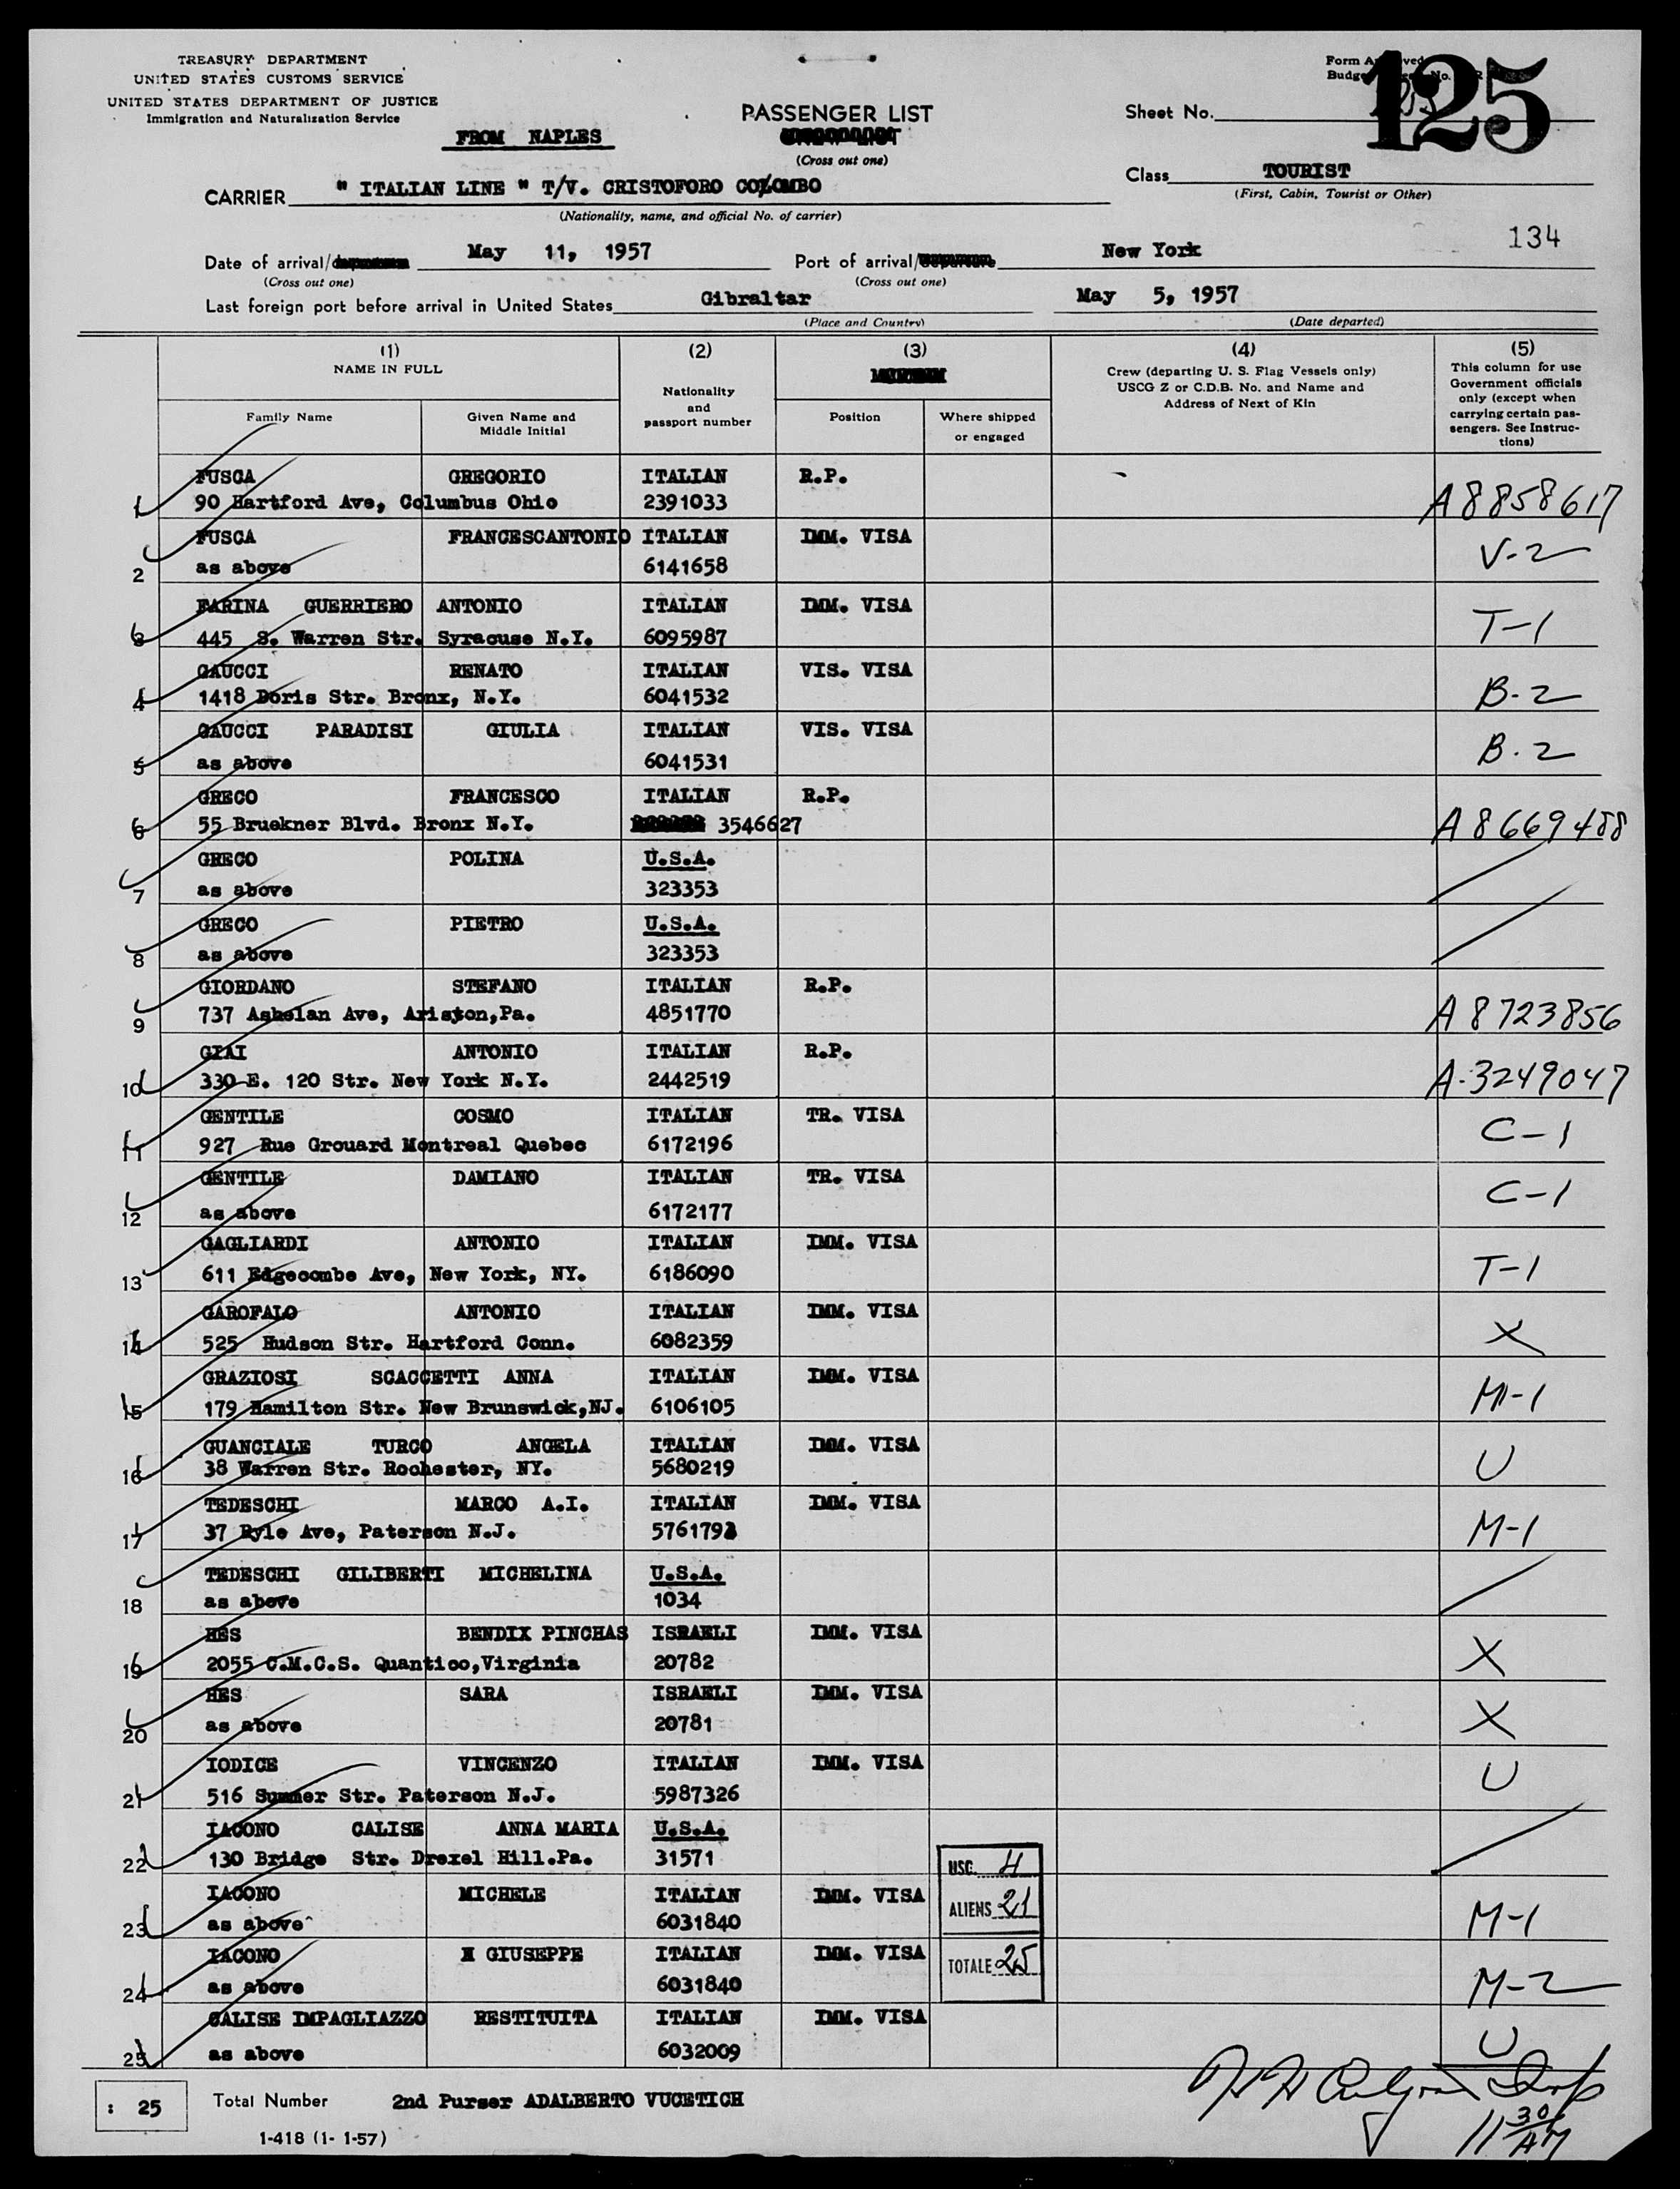 TREASURY DEPARTMENT
UNITED STATES CUSTOMS SERVICE
UNITED STATES DEPARTMENT OF JUSTICE
Immigration and Naturalization Service
FROM NAPLES
PASSENGER LIST
(Cross out one)
Form Approved
Budget No.
125
Sheet No.
Class TOURIST
(First, Cabin, Tourist or Other)
CARRIER " ITALIAN LINE " T/V. CRISTOFORO COLOMBO
(Nationality, name, and official No. of carrier)
134
Date of arrival/ May 11, 1957 Port of arrival/ New York
(Cross out one) (Cross out one)
Last foreign port before arrival in United States Gibraltar May 5, 1957
(Place and Country) (Date departed)
(1) NAME IN FULL
Family Name
Given Name and Middle Initial
(2)
Nationality and passport number
(3)
Position
Where shipped or engaged
(4)
Crew (departing U. S. Flag Vessels only)
USCG Z or C.D.B. No. and Name and
Address of Next of Kin
(5)
This column for use
Government officials
only (except when
carrying certain pas-
sengers. See Instruc-
tions)
FUSCA GREGORIO ITALIAN R.P.
1 90 Hartford Ave, Columbus Ohio 2391033 A8858617
FUSCA FRANCESCANTONIO ITALIAN IMM. VISA V-2
2 as above 6141658
FARINA GUERRIERO ANTONIO ITALIAN IMM. VISA T-1
3 445 S. Warren Str. Syracuse N.Y. 6095987
GAUCCI RENATO ITALIAN VIS. VISA
4 1418 Doris Str. Bronx, N.Y. 6041532 B-2
GAUCCI PARADISI GIULIA ITALIAN VIS. VISA B-2
5 as above 6041531
GRECO FRANCESCO ITALIAN R.P.
6 55 Bruekner Blvd. Bronx N.Y. 3546627 A8669488
GRECO POLINA U.S.A.
7 as above 323353
GRECO PIETRO U.S.A.
8 as above 323353
GIORDANO STEFANO ITALIAN R.P.
9 737 Ashelan Ave, Ariston,Pa. 4851770 A8723856
GIAI ANTONIO ITALIAN R.P.
10 330 E. 120 Str. New York N.Y. 2442519 A-3249047
GENTILE COSMO ITALIAN TR. VISA C-1
11 927 Rue Grouard Montreal Quebec 6172196
GENTILE DAMIANO ITALIAN TR. VISA C-1
12 as above 6172177
GAGLIARDI ANTONIO ITALIAN IMM. VISA
13 611 Edgecombe Ave, New York, NY. 6186090 T-1
GAROFALO ANTONIO ITALIAN IMM. VISA X
14 525 Hudson Str. Hartford Conn. 6082359
GRAZIOSI SCACCETTI ANNA ITALIAN IMM. VISA M-1
15 179 Hamilton Str. New Brunswick,NJ. 6106105
GUANCIALE TURCO ANGELA ITALIAN IMM. VISA U
16 38 Warren Str. Rochester, NY. 5680219
TEDESCHI MARCO A.I. ITALIAN IMM. VISA
17 37 Ryle Ave, Paterson N.J. 5761793 M-1
TEDESCHI GILIBERTI MICHELINA U.S.A.
18 as above 1034
HES BENDIX PINCHAS ISRAELI IMM. VISA X
19 2055 C.M.C.S. Quantico,Virginia 20782
HES SARA ISRAELI IMM. VISA X
20 as above 20781
IODICE VINCENZO ITALIAN IMM. VISA U
21 516 Summer Str. Paterson N.J. 5987326
IACONO CALISE ANNA MARIA U.S.A.
22 130 Bridge Str. Drexel Hill.Pa. 31571
USC. 4
IACONO MICHELE ITALIAN IMM. VISA
ALIENS 21
23 as above 6031840 M-1
IACONO GIUSEPPE ITALIAN IMM. VISA
TOTALE 25
24 as above 6031840 M-2
CALISE IMPAGLIAZZO RESTITUITA ITALIAN IMM. VISA
25 as above 6032009 U
: 25 Total Number 2nd Purser ADALBERTO VUCETICH
I-418 (1- 1-57)
11 30 AM